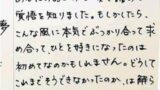 覚悟を知りました。もしかしたら、
こんな風に本気でぶつかり合って求
め合ってひとを好きになったのは
初めてなのかもしれません。どうして
これまでそうできなかったのか、は解ら